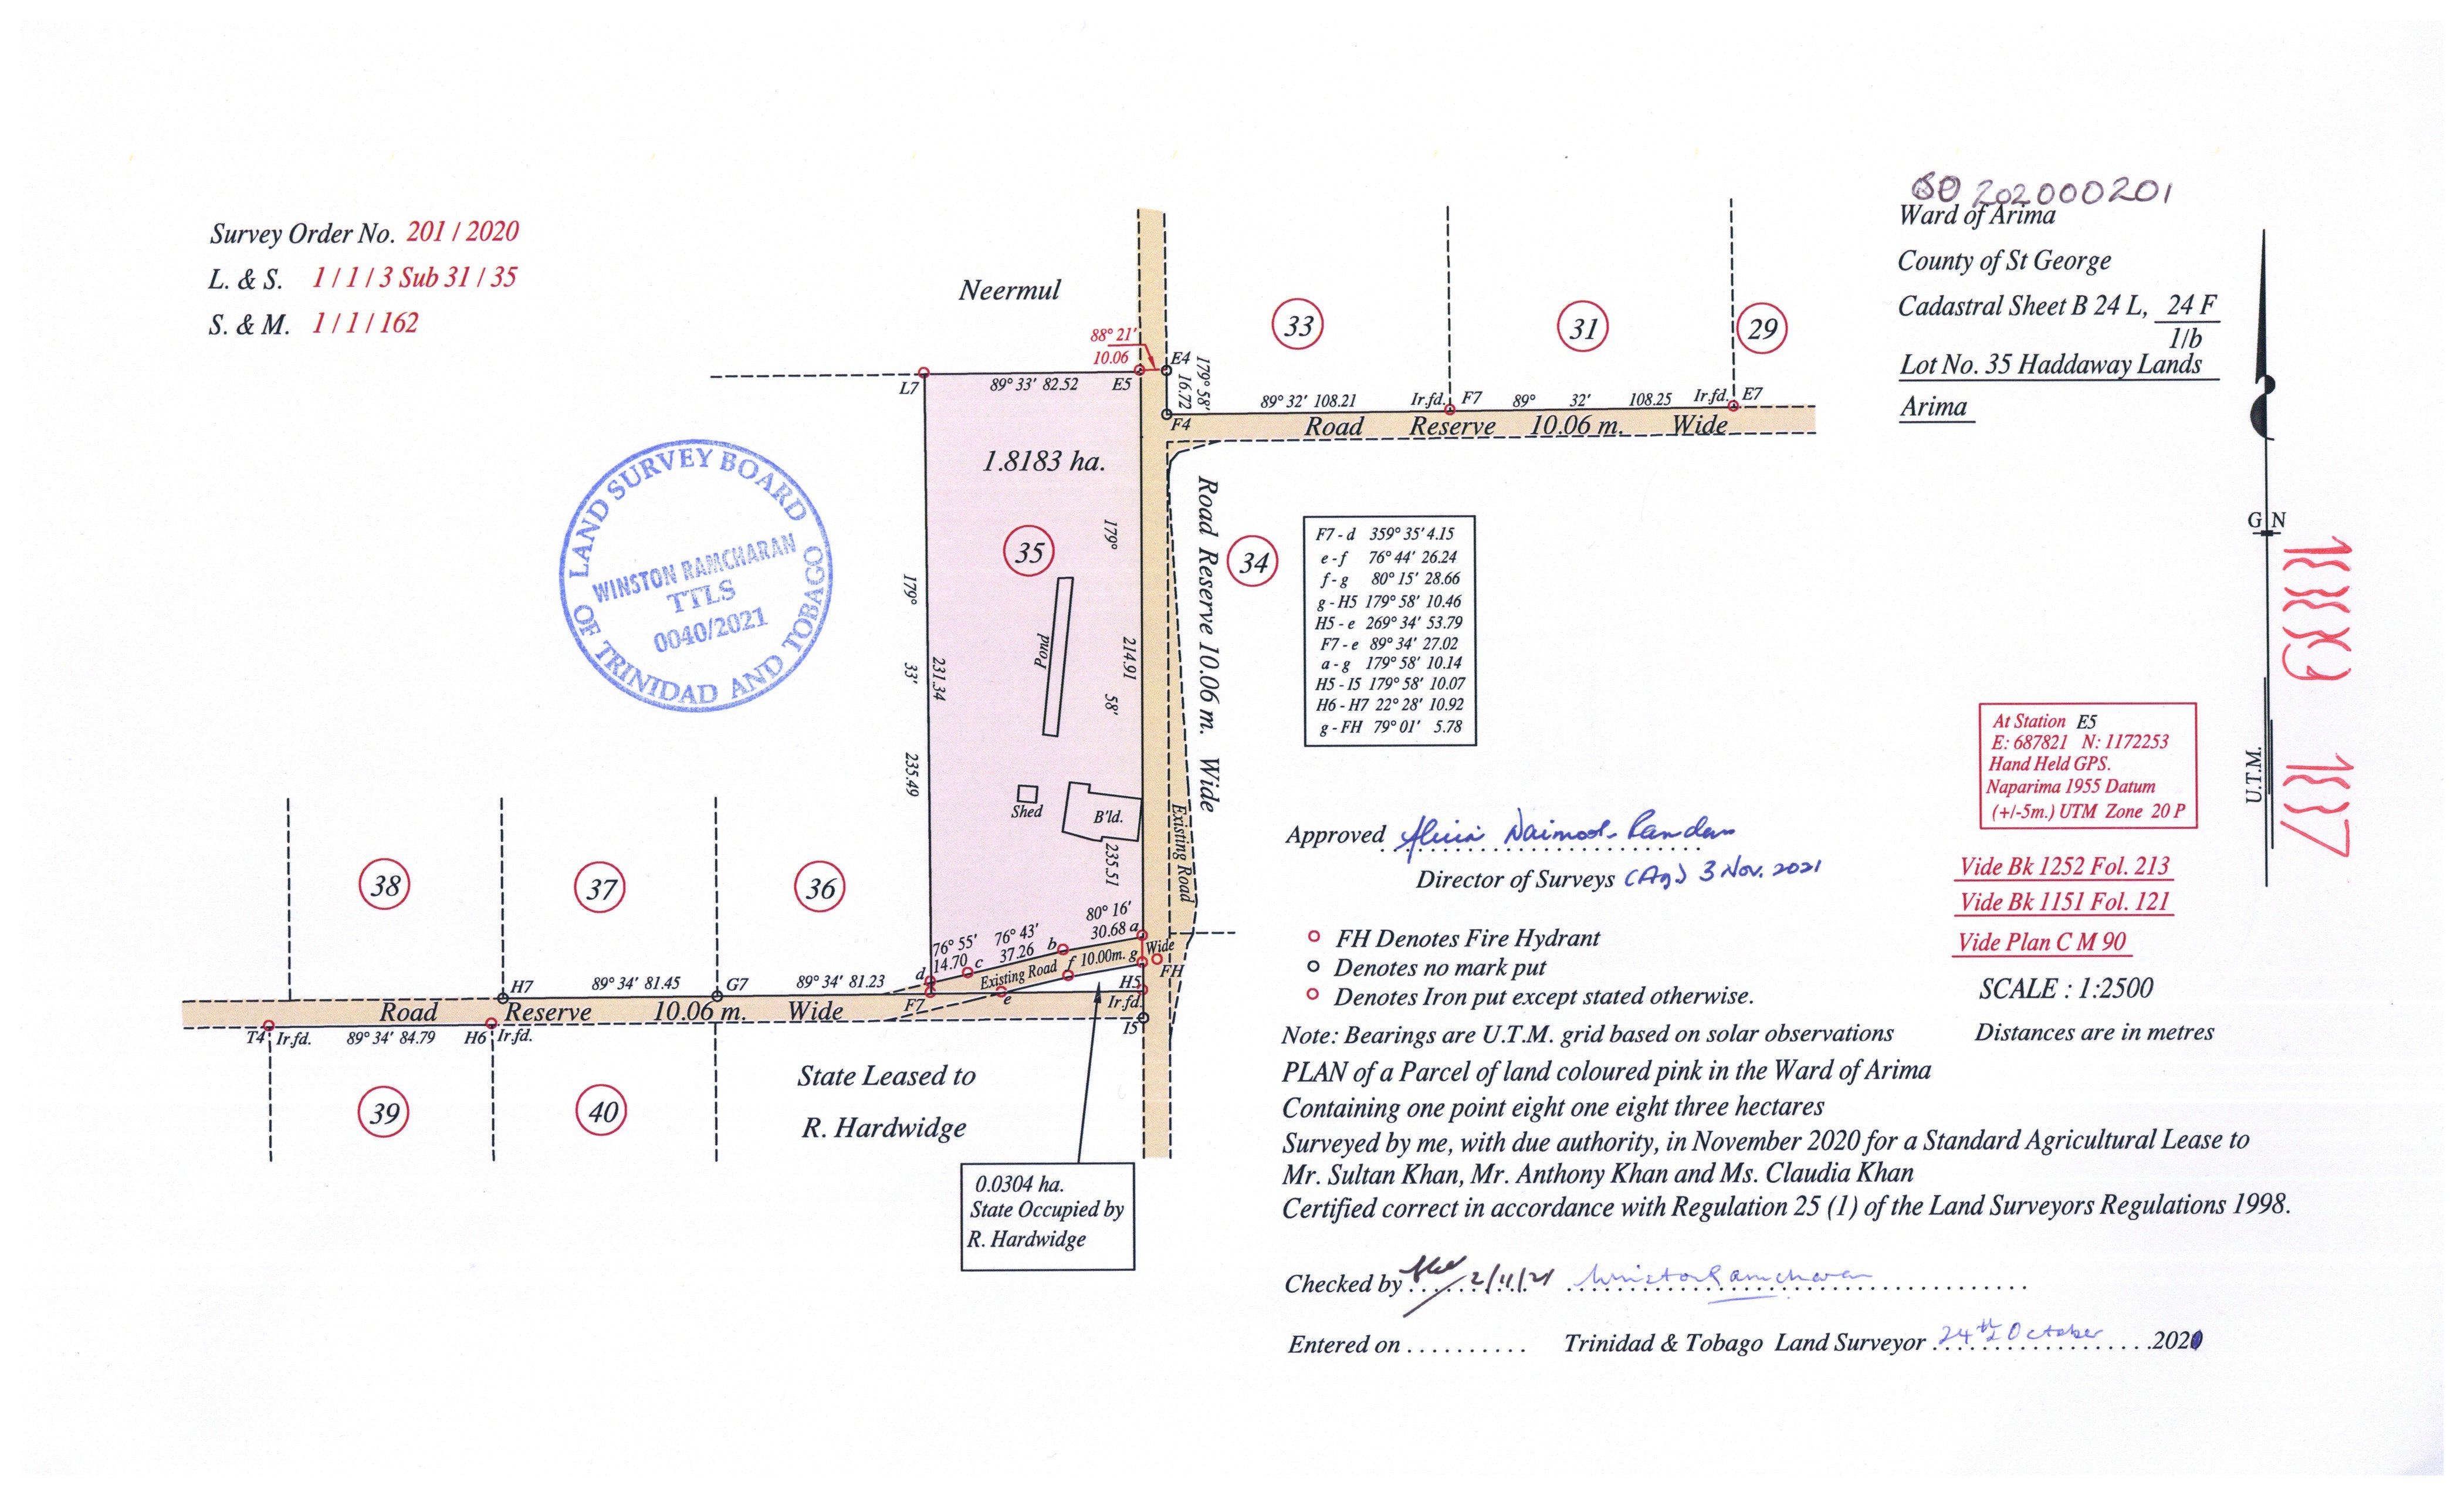 Survey Order No. 201 / 2020
L. & S. 1 / 1 / 3 Sub 31 / 35
S. & M. 1 / 1 / 162
SO 202000201
Ward of Arima
County of St George
Cadastral Sheet B 24 L, 24 F
1/b
Lot No. 35 Haddaway Lands
Arima
Neermul
33
31
29
88° 21'
10.06
E4
179° 58'
16.72
F4
L7
89° 33' 82.52
E5
89° 32' 108.21
Ir.fd.
F7
89° 32' 108.25
Ir.fd.
E7
Road Reserve 10.06 m. Wide
1.8183 ha.
35
34
Road Reserve 10.06 m. Wide
179° 58'
214.91
235.51
179° 33'
231.34
235.49
Pond
Shed
B'ld.
Existing Road
LAND SURVEY BOARD
OF TRINIDAD AND TOBAGO
WINSTON RAMCHARAN
TTLS
0040/2021
F7 - d 359° 35' 4.15
e - f 76° 44' 26.24
f - g 80° 15' 28.66
g - H5 179° 58' 10.46
H5 - e 269° 34' 53.79
F7 - e 89° 34' 27.02
a - g 179° 58' 10.14
H5 - I5 179° 58' 10.07
H6 - H7 22° 28' 10.92
g - FH 79° 01' 5.78
G N
U.T.M.
At Station E5
E: 687821 N: 1172253
Hand Held GPS.
Naparima 1955 Datum
(+/-5m.) UTM Zone 20 P
Vide Bk 1252 Fol. 213
Vide Bk 1151 Fol. 121
Vide Plan C M 90
38
37
36
80° 16'
30.68
a
76° 43'
37.26
b
76° 55'
14.70
c
d
Existing Road f 10.00m. g Wide
FH
H5
Ir.fd.
I5
e
F7
H7
89° 34' 81.45
G7
89° 34' 81.23
Road Reserve 10.06 m. Wide
T4
Ir.fd.
89° 34' 84.79
H6
Ir.fd.
39
40
State Leased to
R. Hardwidge
0.0304 ha.
State Occupied by
R. Hardwidge
Approved
Director of Surveys (Ag) 3 Nov. 2021
FH Denotes Fire Hydrant
Denotes no mark put
Denotes Iron put except stated otherwise.
SCALE : 1:2500
Note: Bearings are U.T.M. grid based on solar observations
Distances are in metres
PLAN of a Parcel of land coloured pink in the Ward of Arima
Containing one point eight one eight three hectares
Surveyed by me, with due authority, in November 2020 for a Standard Agricultural Lease to
Mr. Sultan Khan, Mr. Anthony Khan and Ms. Claudia Khan
Certified correct in accordance with Regulation 25 (1) of the Land Surveyors Regulations 1998.
Checked by 2/11/21 Winston Ramcharan
Entered on .......... Trinidad & Tobago Land Surveyor 24th October 2021